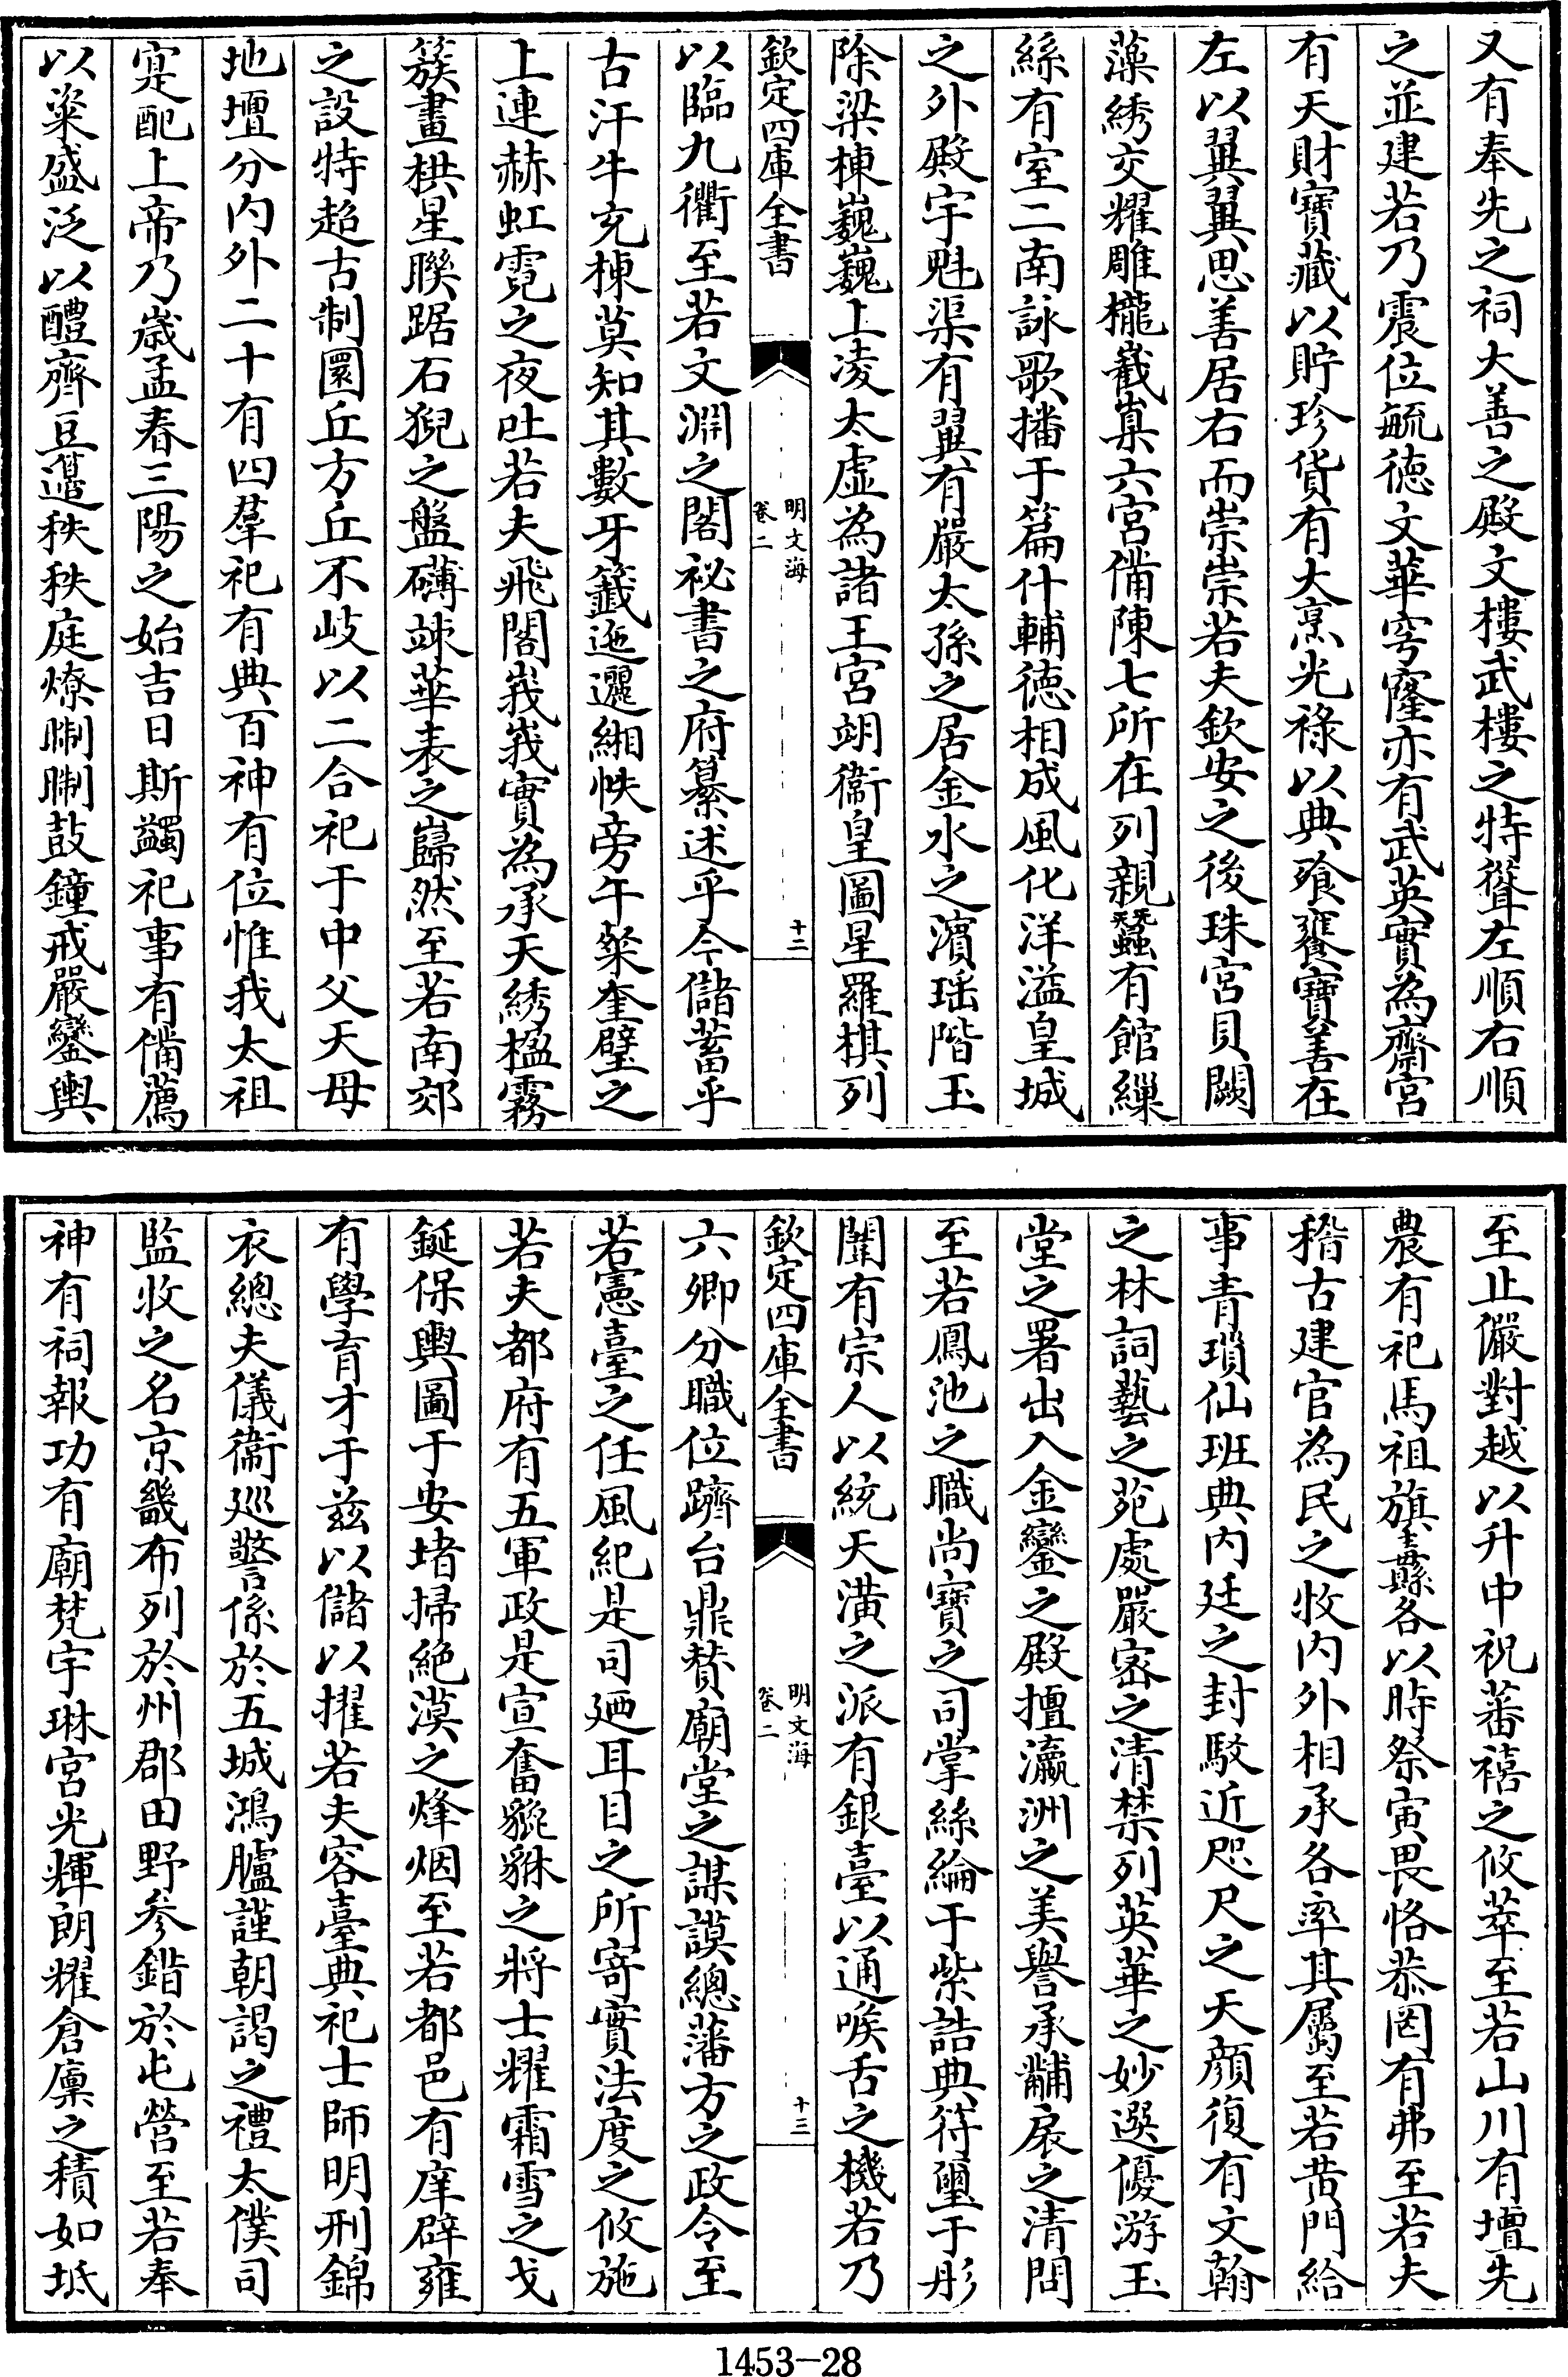 又有奉先之祠大善之殿文樓武樓之特聳左順右順
之並建若乃震位毓徳文華穹窿亦有武英實為齋宮
有天財寶藏以貯珍貨有大烹光祿以典飧饔寶善在
左以翼翼思善居右而崇崇若夫欽安之後珠宮貝闕
藻綉交耀雕櫳㠂嵲六宮備陳七所在列親蠶有館繅
絲有室二南詠歌播于篇什輔徳相成風化洋溢皇城
之外殿宇魁渠有翼有嚴太孫之居金水之濱瑶階玉
除梁棟巍巍上凌太虛為諸王宮翊衞皇圖星羅棋列
欽定四庫全書
明文海
卷二
十二
以臨九衢至若文淵之閣祕書之府纂述乎今儲蓄乎
古汗牛充棟莫知其數牙籤迤邐緗帙旁午粲奎璧之
上連赫虹霓之夜吐若夫飛閣峩峩實為承天綉楹霧
簇畫栱星聨踞石猊之盤礴竦華表之巋然至若南郊
之設特超古制圜丘方丘不岐以二合祀于中父天母
地壇分内外二十有四羣祀有典百神有位惟我太祖
寔配上帝乃嵗孟春三陽之始吉日斯蠲祀事有備薦
以粢盛泛以醴齊豆籩秩秩庭燎晣晣鼓鐘戒嚴鑾輿
至止儼對越以升中祝蕃禧之攸萃至若山川有壇先
農有祀馬祖旗纛各以時祭寅畏恪恭罔有弗至若夫
稽古建官為民之牧内外相承各率其屬至若黄門給
事青瑣仙班典内廷之封駁近咫尺之天顔復有文翰
之林詞藝之苑處嚴密之清禁列英華之妙選優游玉
堂之署出入金鑾之殿擅瀛洲之美譽承黼扆之清問
至若鳳池之職尚寶之司掌絲綸于紫誥典符璽于彤
闈有宗人以統天潢之派有銀臺以通喉舌之機若乃
欽定四庫全書
明文海
卷二
十三
六卿分職位躋台鼎賛廟堂之謀謨總藩方之政令至
若憲臺之任風紀是司廼耳目之所寄實法度之攸施
若夫都府有五軍政是宣奮貔貅之將士耀霜雪之戈
鋋保輿圖于安堵掃絶漠之烽烟至若都邑有庠辟雍
有學育才于兹以儲以擢若夫容臺典祀士師明刑錦
衣總夫儀衞廵警係於五城鴻臚謹朝謁之禮太僕司
監收之名京畿布列於州郡田野參錯於屯營至若奉
神有祠報功有廟梵宇琳宮光輝朗耀倉廩之積如坻
1453-28